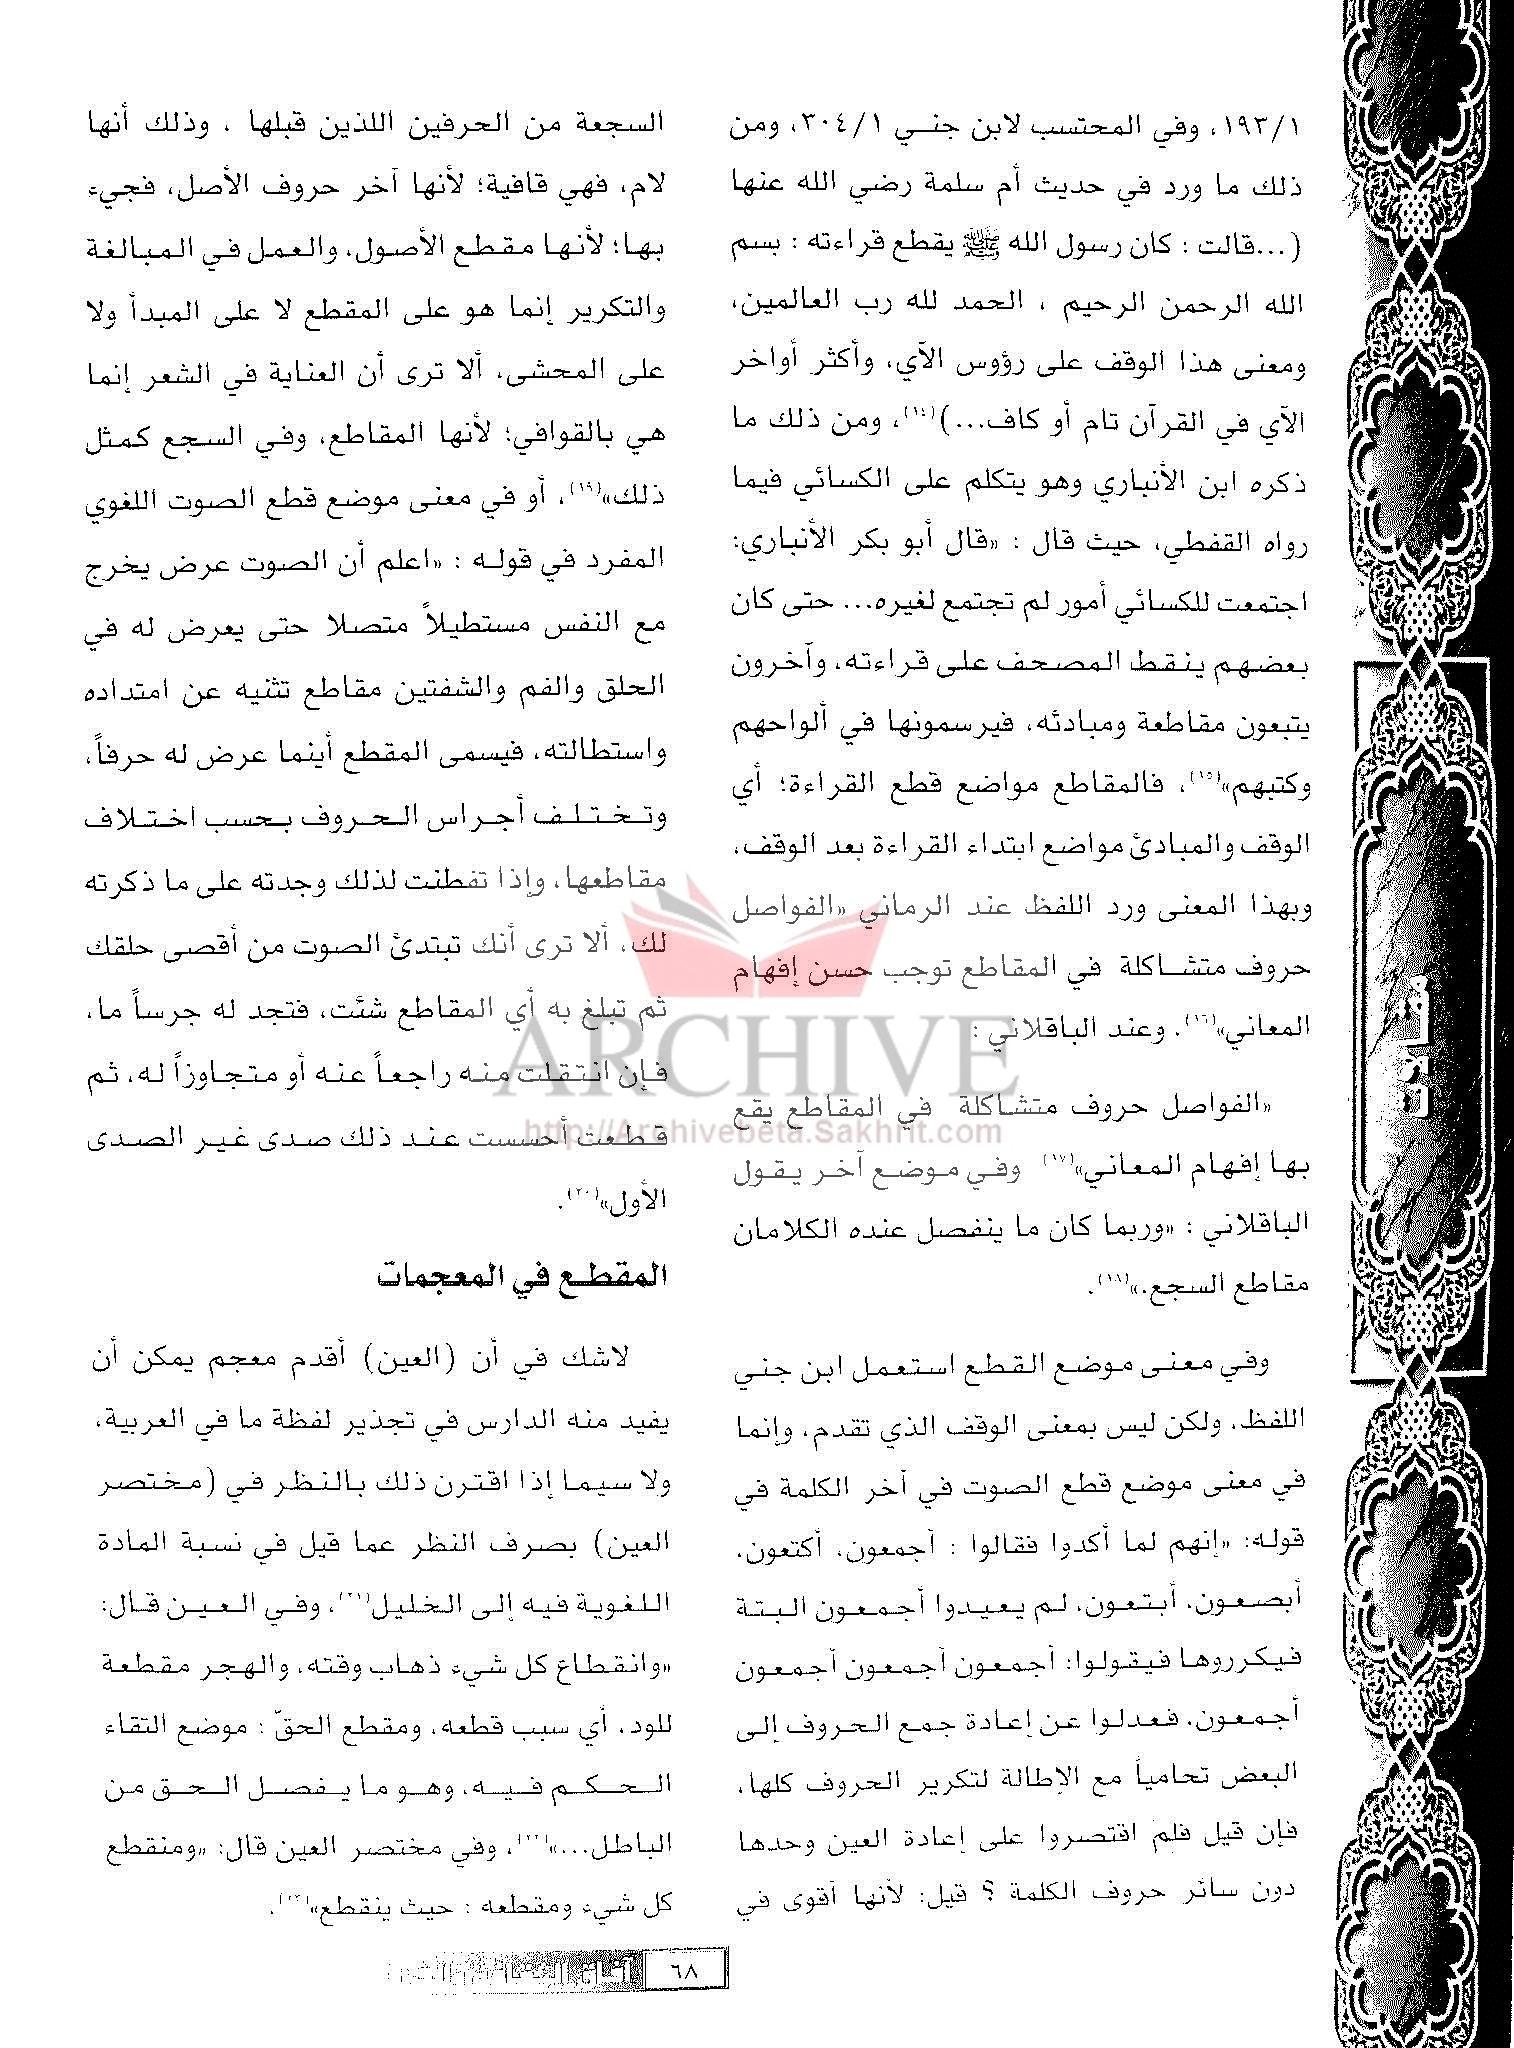 ١٩٣/١، وفي المحتسب لابن جنـي ٣٠٤/١، ومن
ذلك ما ورد في حديث أم سلمة رضي الله عنها
(...قالت : كان رسول الله ﷺ يقطع قراءته : بسم
الله الرحمن الرحيم ، الحمد لله رب العالمين،
ومعنى هذا الوقف على رؤوس الآي، وأكثر أواخر
الآي في القرآن تام أو كاف...)(١٤)، ومن ذلك ما
ذكره ابن الأنباري وهو يتكلم على الكسائي فيما
رواه القفطي، حيث قال : «قال أبو بكر الأنباري:
اجتمعت للكسائي أمور لم تجتمع لغيره... حتى كان
بعضهم ينقط المصحف على قراءته، وآخرون
يتبعون مقاطعة ومبادئه، فيرسمونها في ألواحهم
وكتبهم»(١٥)، فالمقاطع مواضع قطع القراءة؛ أي
الوقف والمبادئ مواضع ابتداء القراءة بعد الوقف،
وبهذا المعنى ورد اللفظ عند الرماني «الفواصل
حروف متشـاكلة في المقاطع توجب حسن إفهام
المعاني»(١٦). وعند الباقلاني :
«الفواصل حروف متشـاكلة في المقاطع يقع
بها إفهام المعاني»(١٧) وفي موضع آخر يقول
الباقلاني : «وربما كان ما ينفصل عنده الكلامان
مقاطع السجع.»(١٨).
وفي معنى موضع القطع استعمل ابن جني
اللفظ، ولكن ليس بمعنى الوقف الذي تقدم، وإنما
في معنى موضع قطع الصوت في أخر الكلمة في
قوله: «إنهم لما أكدوا فقالوا : أجمعون، أكتعون،
أبصعون، أبتعون، لم يعيدوا أجمعون البتة
فيكرروها فيقولوا: أجمعون أجمعون أجمعون
أجمعون، فعدلوا عن إعادة جمع الحروف إلى
البعض تحامياً مع الإطالة لتكرير الحروف كلها،
فإن قيل فلم اقتصروا على إعادة العين وحدها
دون سائر حروف الكلمة ؟ قيل: لأنها أقوى في
السجعة من الحرفين اللذين قبلها ، وذلك أنها
لام، فهي قافية؛ لأنها آخر حروف الأصل، فجيء
بها؛ لأنها مقطع الأصول، والعمل في المبالغة
والتكرير إنما هو على المقطع لا على المبدأ ولا
على المحشى، ألا ترى أن العناية في الشعر إنما
هي بالقوافي؛ لأنها المقاطع، وفي السجع كمثل
ذلك»(١٩)، أو في معنى موضع قطع الصوت اللغوي
المفرد في قوله : «اعلم أن الصوت عرض يخرج
مع النفس مستطيلاً متصلا حتى يعرض له في
الحلق والفم والشفتين مقاطع تثنيه عن امتداده
واستطالته، فيسمى المقطع أينما عرض له حرفاً،
وتختلف أجراس الحروف بحسب اختلاف
مقاطعها، وإذا تفطنت لذلك وجدته على ما ذكرته
لك، ألا ترى أنك تبتدئ الصوت من أقصى حلقك
ثم تبلغ به أي المقاطع شئت، فتجد له جرساً ما،
فإن انتقلت منه راجعاً عنه أو متجاوزاً له، ثم
قطعت أحسست عند ذلك صدى غير الصدى
الأول»(٢٠).
المقطع في المعجمات
لاشك في أن (العين) أقدم معجم يمكن أن
يفيد منه الدارس في تجذير لفظة ما في العربية،
ولا سيما إذا اقترن ذلك بالنظر في (مختصر
العين) بصرف النظر عما قيل في نسبة المادة
اللغوية فيه إلى الخليل(٢١)، وفي العين قال:
«وانقطاع كل شيء ذهاب وقته، والهجر مقطعة
للود، أي سبب قطعه، ومقطع الحقّ : موضع التقاء
الحكم فيه، وهو ما يفصل الحق من
الباطل...»(٢٢)، وفي مختصر العين قال: «ومنقطع
كل شيء ومقطعه : حيث ينقطع»(٢٣).
مقالات
ARCHIVE
http://Archivebeta.Sakhrit.com
٦٨